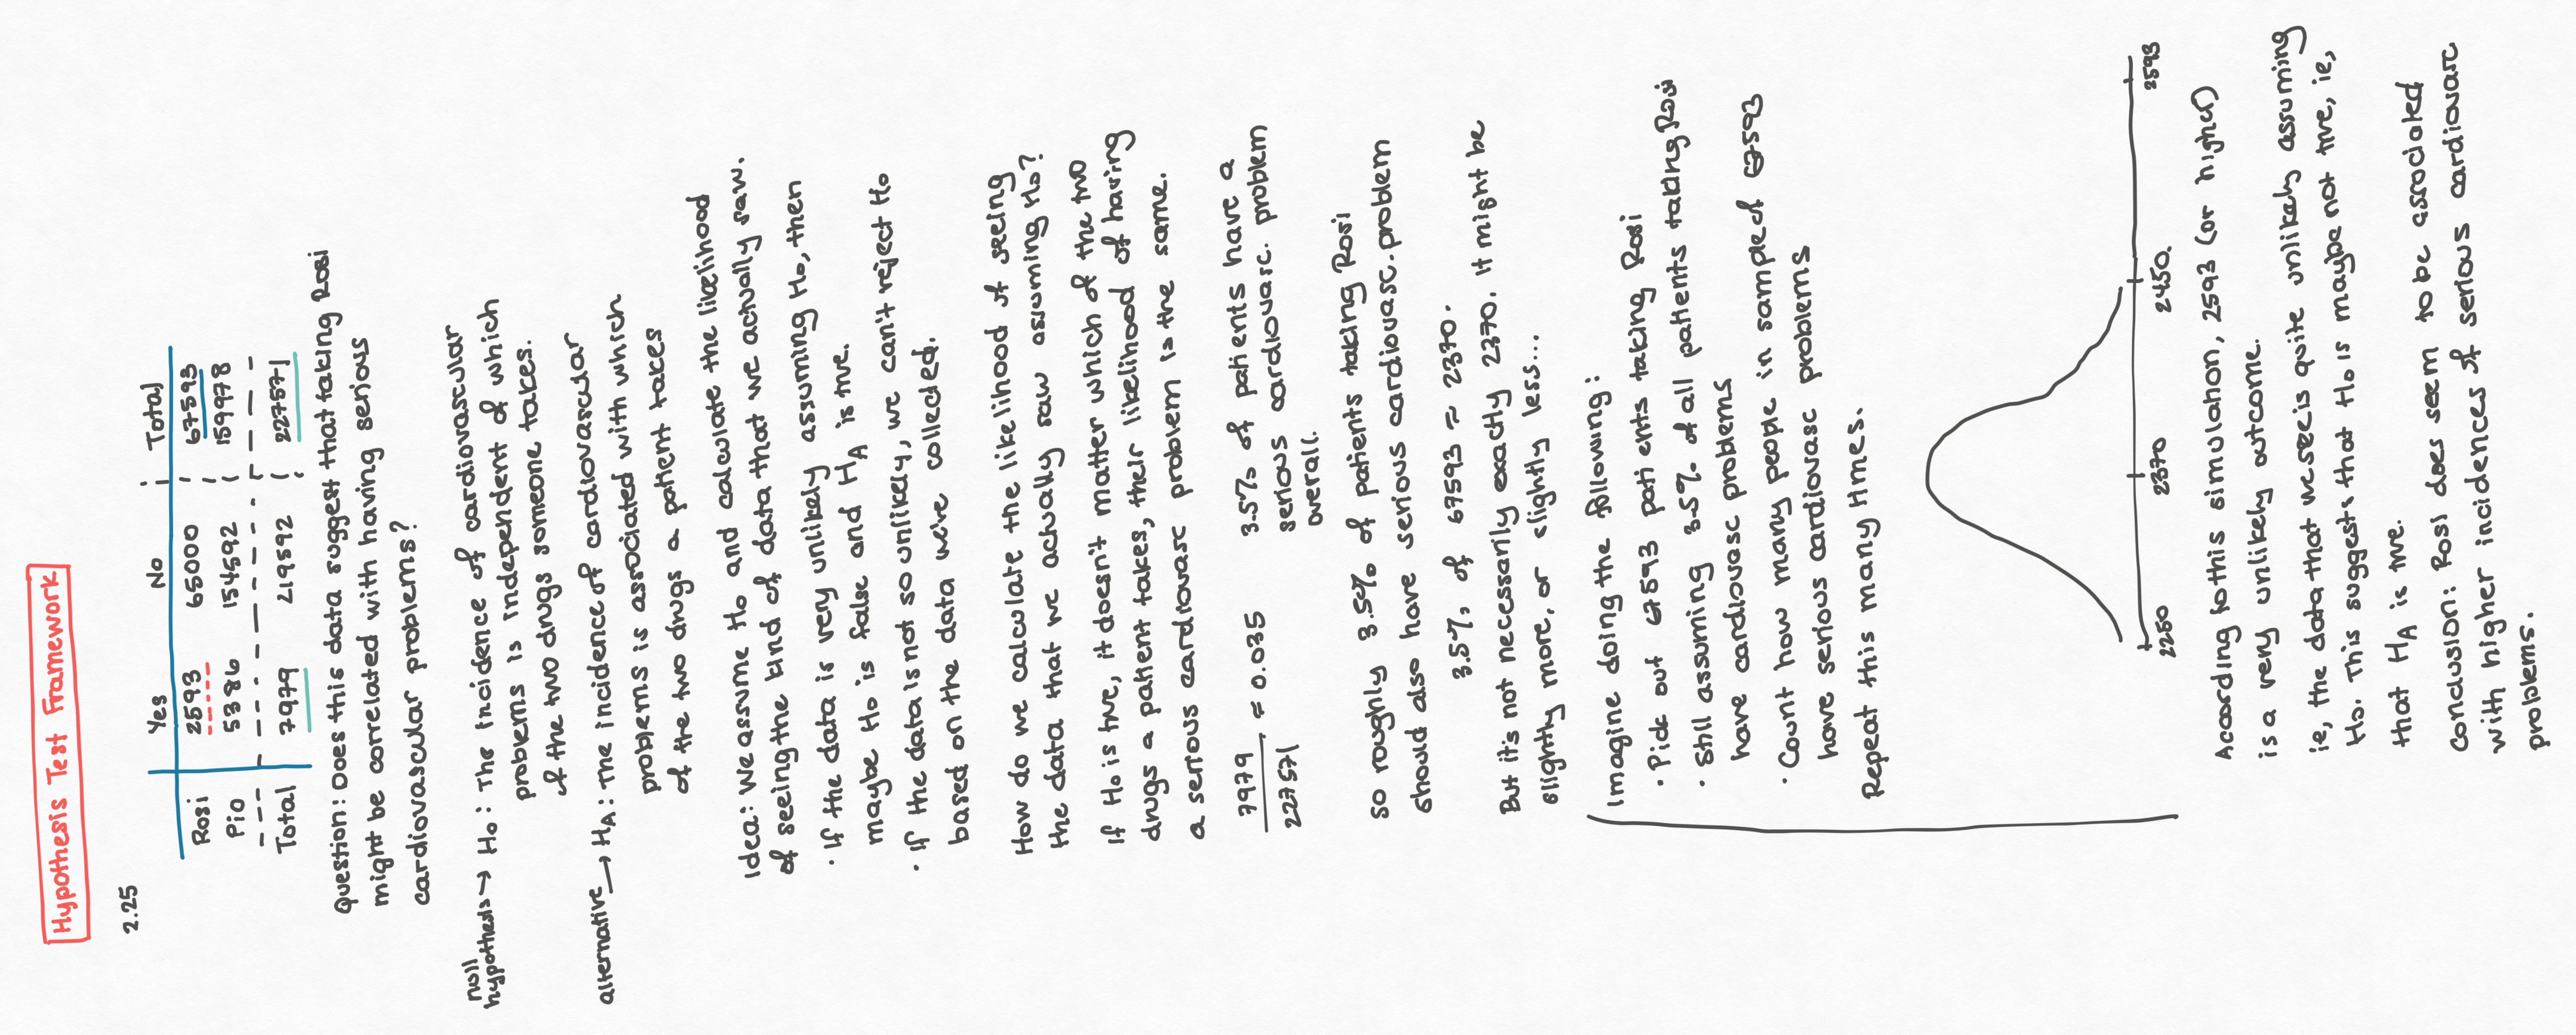 Hypothesis Test Framework
2.25
Yes No Total
Rosi 2593 65000 67593
Pio 5386 154592 159978
Total 7979 219592 227571
Question: Does this data suggest that taking Rosi
might be correlated with having serious
cardiovascular problems?
null
hypothesis → H₀: The incidence of cardiovascular
problems is independent of which
of the two drugs someone takes.
alternative → Hₐ: The incidence of cardiovascular
problems is associated with which
of the two drugs a patient takes
Idea: We assume H₀ and calculate the likelihood
of seeing the kind of data that we actually saw.
· If the data is very unlikely assuming H₀, then
maybe H₀ is false and Hₐ is true.
· If the data is not so unlikely, we can't reject H₀
based on the data we've collected.
How do we calculate the likelihood of seeing
the data that we actually saw assuming H₀?
If H₀ is true, it doesn't matter which of the two
drugs a patient takes, their likelihood of having
a serious cardiovasc problem is the same.
7979/227571 ≈ 0.035
3.5% of patients have a
serious cardiovasc. problem
overall.
so roughly 3.5% of patients taking Rosi
should also have serious cardiovasc. problem
3.5% of 67593 ≈ 2370.
But it's not necessarily exactly 2370. It might be
slightly more, or slightly less...
Imagine doing the following:
· Pick out 67593 patients taking Rosi
· Still assuming 3.5% of all patients taking Rosi
have cardiovasc problems
· Count how many people in sample of 67593
have serious cardiovasc problems
Repeat this many times.
2250 2370 2450. 2593
According to this simulation, 2593 (or higher)
is a very unlikely outcome.
ie, the data that we see is quite unlikely assuming
H₀. This suggests that H₀ is maybe not true, ie,
that Hₐ is true.
Conclusion: Rosi does seem to be associated
with higher incidences of serious cardiovasc
problems.